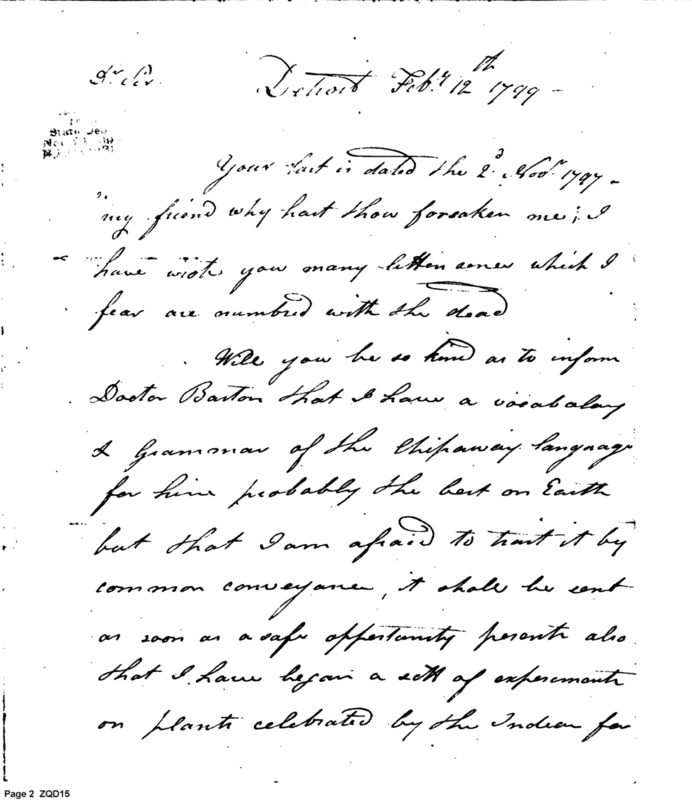 Dr Sir
Detroit Feby 12th 1799 -
State
Your last is dated the 2d Novr 1797 -
"my friend why hast thou forsaken me; I
have wrote you many letters since which I
fear are numbred with the dead
Will you be so kind as to inform
Doctor Barton that I have a vocabalary
& Grammar of the Chipaway language
for him probably the best on Earth
but that I am afraid to trust it by
common conveyance, it shall be sent
as soon as a safe oppertunity presents also
that I have began a sett of experements
on plants celebrated by the Indian for
Page 2 ZQD15